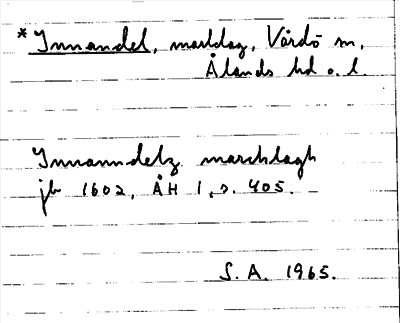 *Innandel, marklag, Vårdö sn,
Ålands hd o. l.
Innanndelz marchlagh
jb 1602, ÅH 1, s. 405.
S. A. 1965.